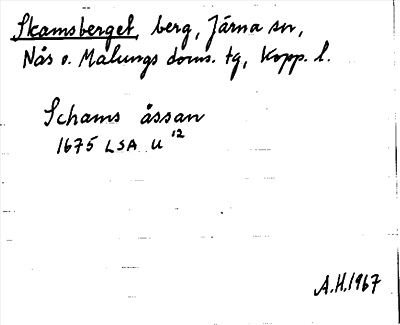 Skamsberget, berg, Järna sn,
Nås o. Malungs doms. tg, Kopp. l.
Schams åssan
1675 LSA U 12
A.H. 1967